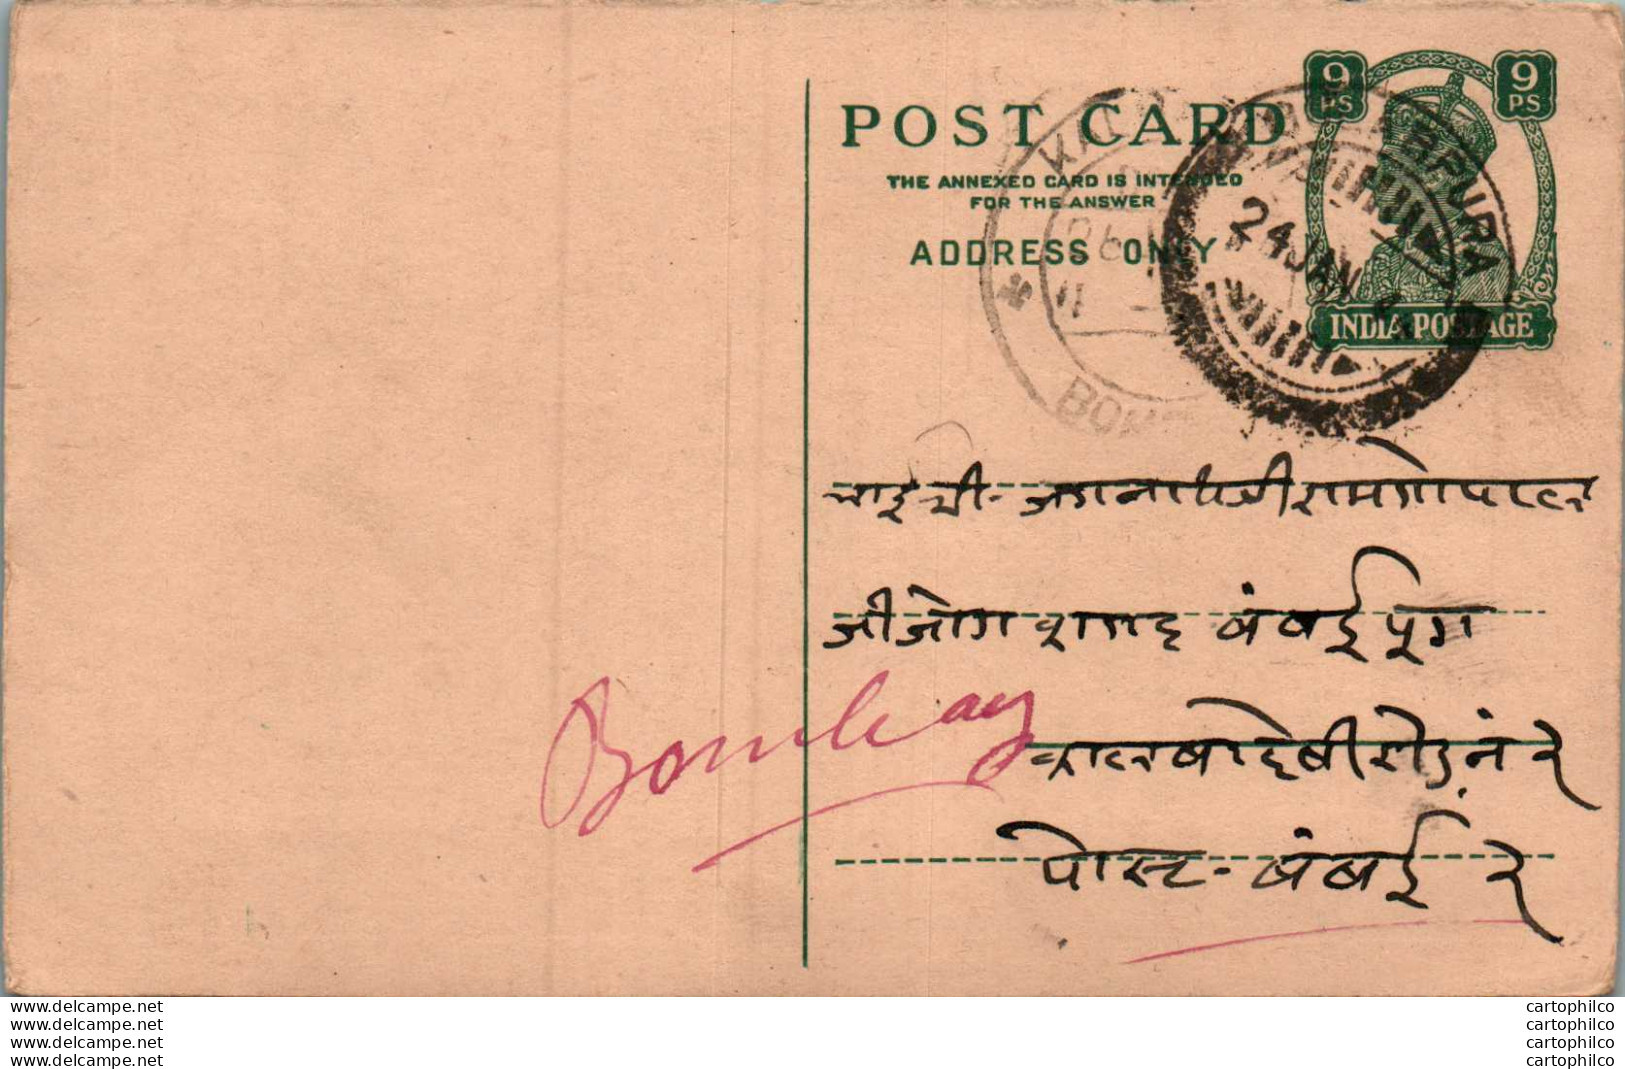 POST CARD
THE ANNEXED CARD IS INTENDED
FOR THE ANSWER
ADDRESS ONLY
9 PS
9 PS
INDIA POSTAGE
24 JAN
भाई श्री - जगनाथजी रामगोपाल
बंबई
Bombay
कालबादेबी रोड नं २
पोस्ट - बंबई २
www.delcampe.net
www.delcampe.net
www.delcampe.net
www.delcampe.net
cartophilco
cartophilco
cartophilco
cartophilco